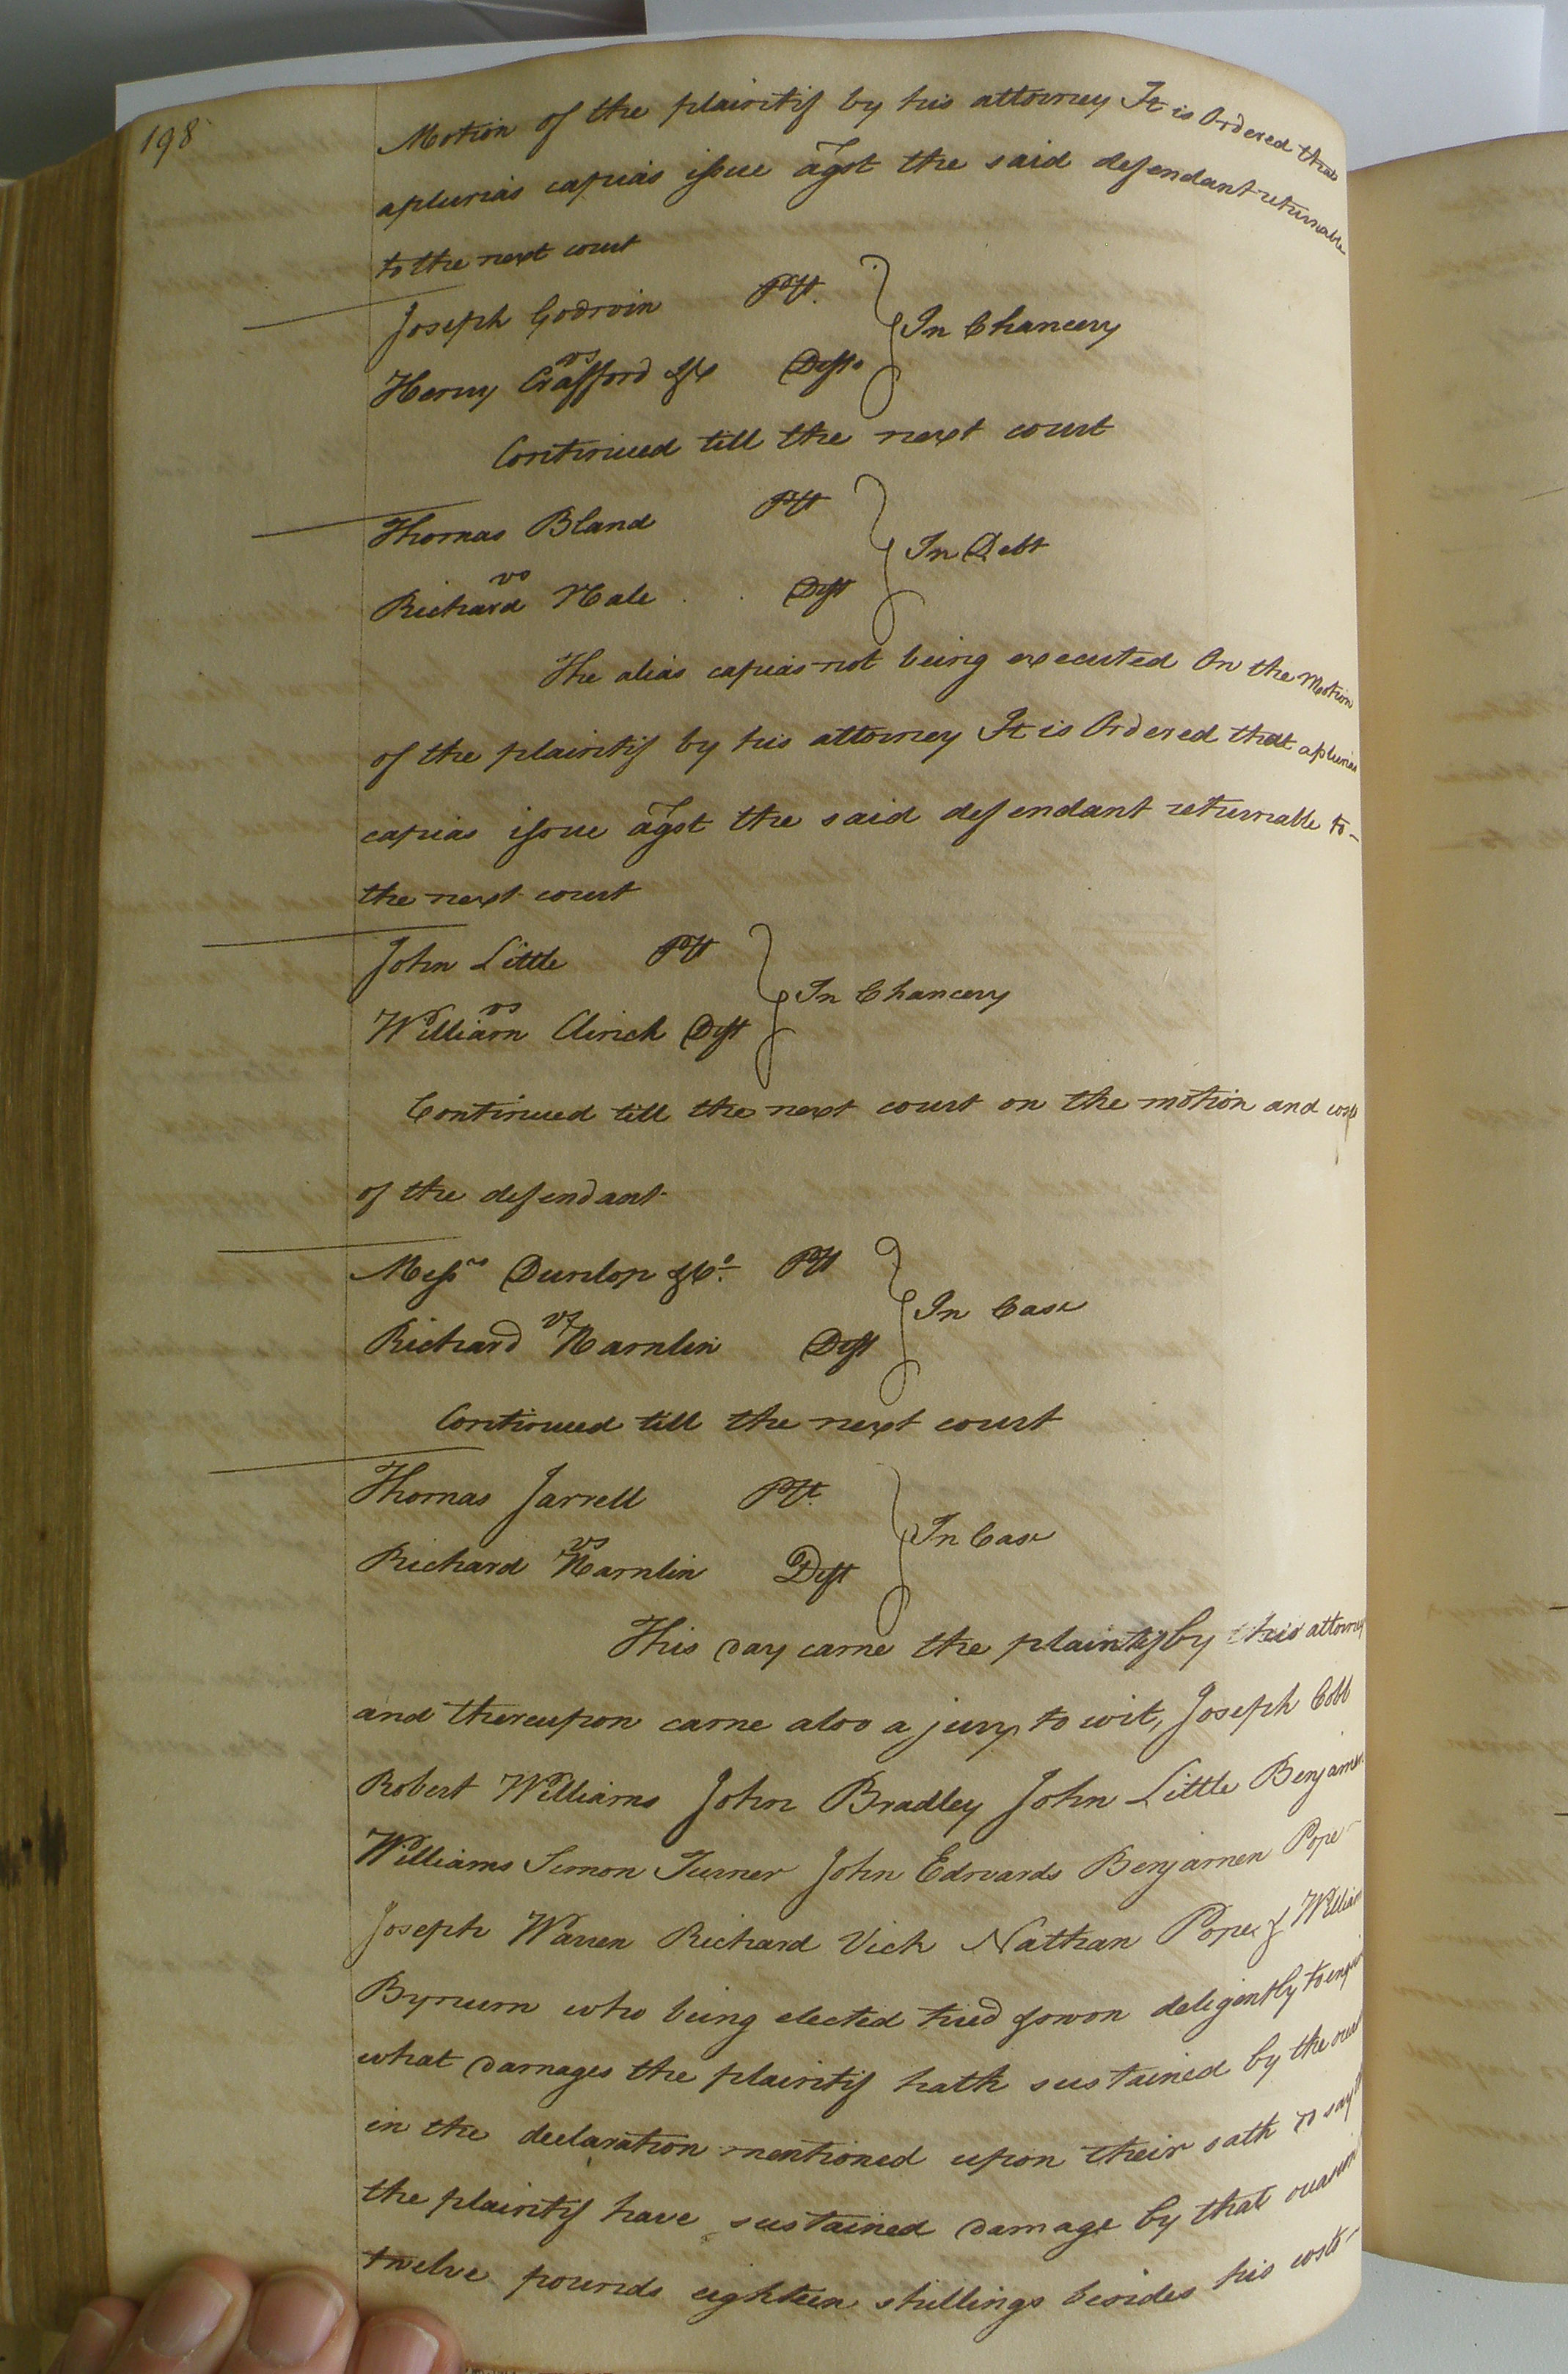 198
Motion of the plaintif by his attorney It is Ordered that
aplurias capias issue agst the said defendant returnable
to the next court
Joseph Godwin Plt.
vs
In Chancery
Henry Crafford &c Defts
Continued till the next court
Thomas Bland Plt
vs
In Debt
Richard Hale Deft
The alias capias not being executed On the Motion
of the plaintif by his attorney It is Ordered that aplurias
capias issue agst the said defendant returnable to
the next court
John Little Plt
vs
In Chancery
William Urick Deft
Continued till the next court on the motion and
of the defendant
Messrs Dunlop & Co. Plt
vs
In Case
Richard Hamlin Deft
Continued till the next court
Thomas Jarrell Plt.
vs
In Case
Richard Hamlin Deft
This day came the plaintif by his attorney
and thereupon came also a jury, to wit, Joseph Cobb
Robert Williams John Bradley John Little Benjamen
Williams Simon Turner John Edwards Benjamen Pope
Joseph Warren Richard Vick Nathan Pope & William
Bynum who being elected tried & sworn deligently to enquire
what damages the plaintif hath sustained by the
in the declaration mentioned upon their oath do say
the plaintif have sustained damage by that occasion
twelve pounds eighteen shillings besides his costs